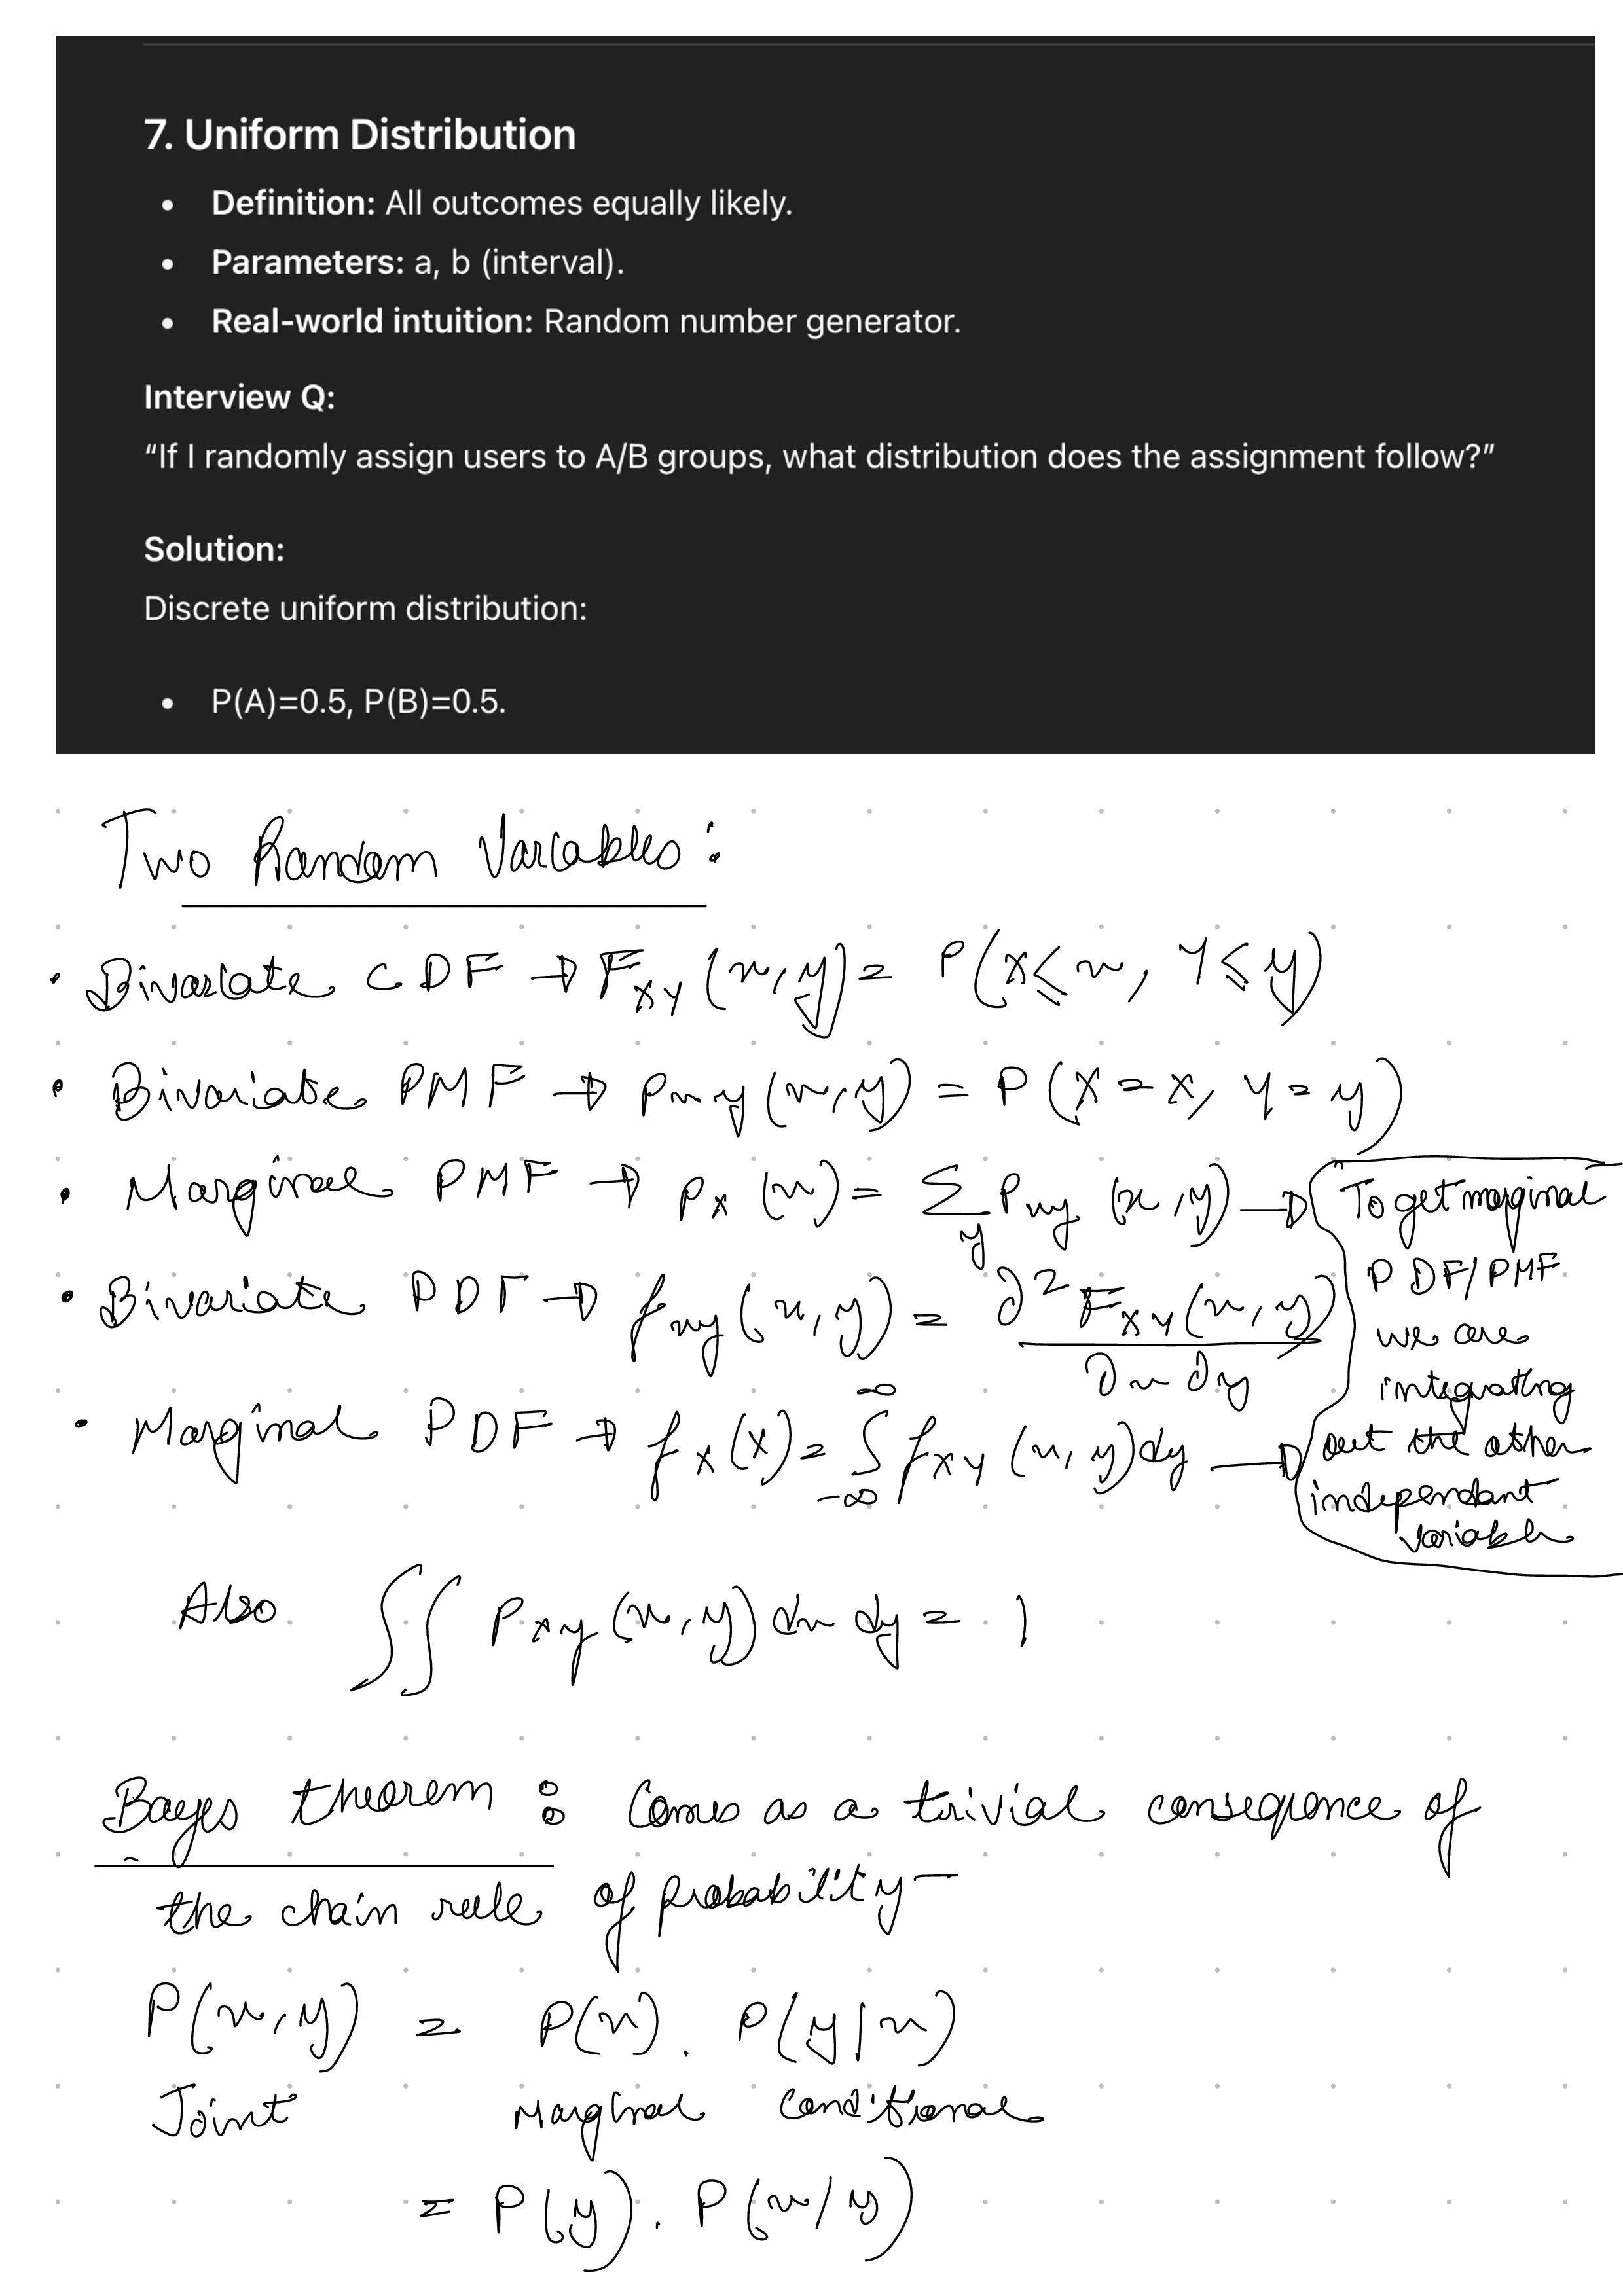 7. Uniform Distribution
• Definition: All outcomes equally likely.
• Parameters: a, b (interval).
• Real-world intuition: Random number generator.
Interview Q:
“If I randomly assign users to A/B groups, what distribution does the assignment follow?”
Solution:
Discrete uniform distribution:
• P(A)=0.5, P(B)=0.5.
Two Random Variables:
• Bivariate CDF → F_XY (x,y) = P(X≤x, Y≤y)
• Bivariate PMF → P_xy (x,y) = P(X=x, Y=y)
• Marginal PMF → P_X (x) = ∑_y P_xy (x,y) →
• Bivariate PDF → f_xy (x,y) = ∂² F_XY (x,y) / ∂x ∂y
• Marginal PDF → f_X (x) = ∫_{-∞}^{∞} f_XY (x,y) dy →
To get marginal
PDF/PMF
we are
integrating
out the other
independant
variable
Also ∫∫ P_xy (x,y) dx dy = 1
Bayes theorem : Comes as a trivial consequence of
the chain rule of probability –
P(x,y) = P(x) . P(y|x)
Joint Marginal Conditional
= P(y) . P(x/y)